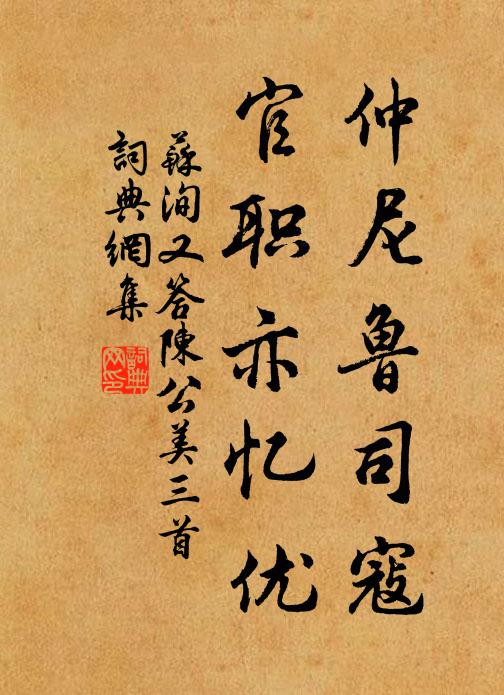 仲尼鲁司寇
官职亦忆优
蘇洵又答陳公美三首
詞典網集
詞典網印